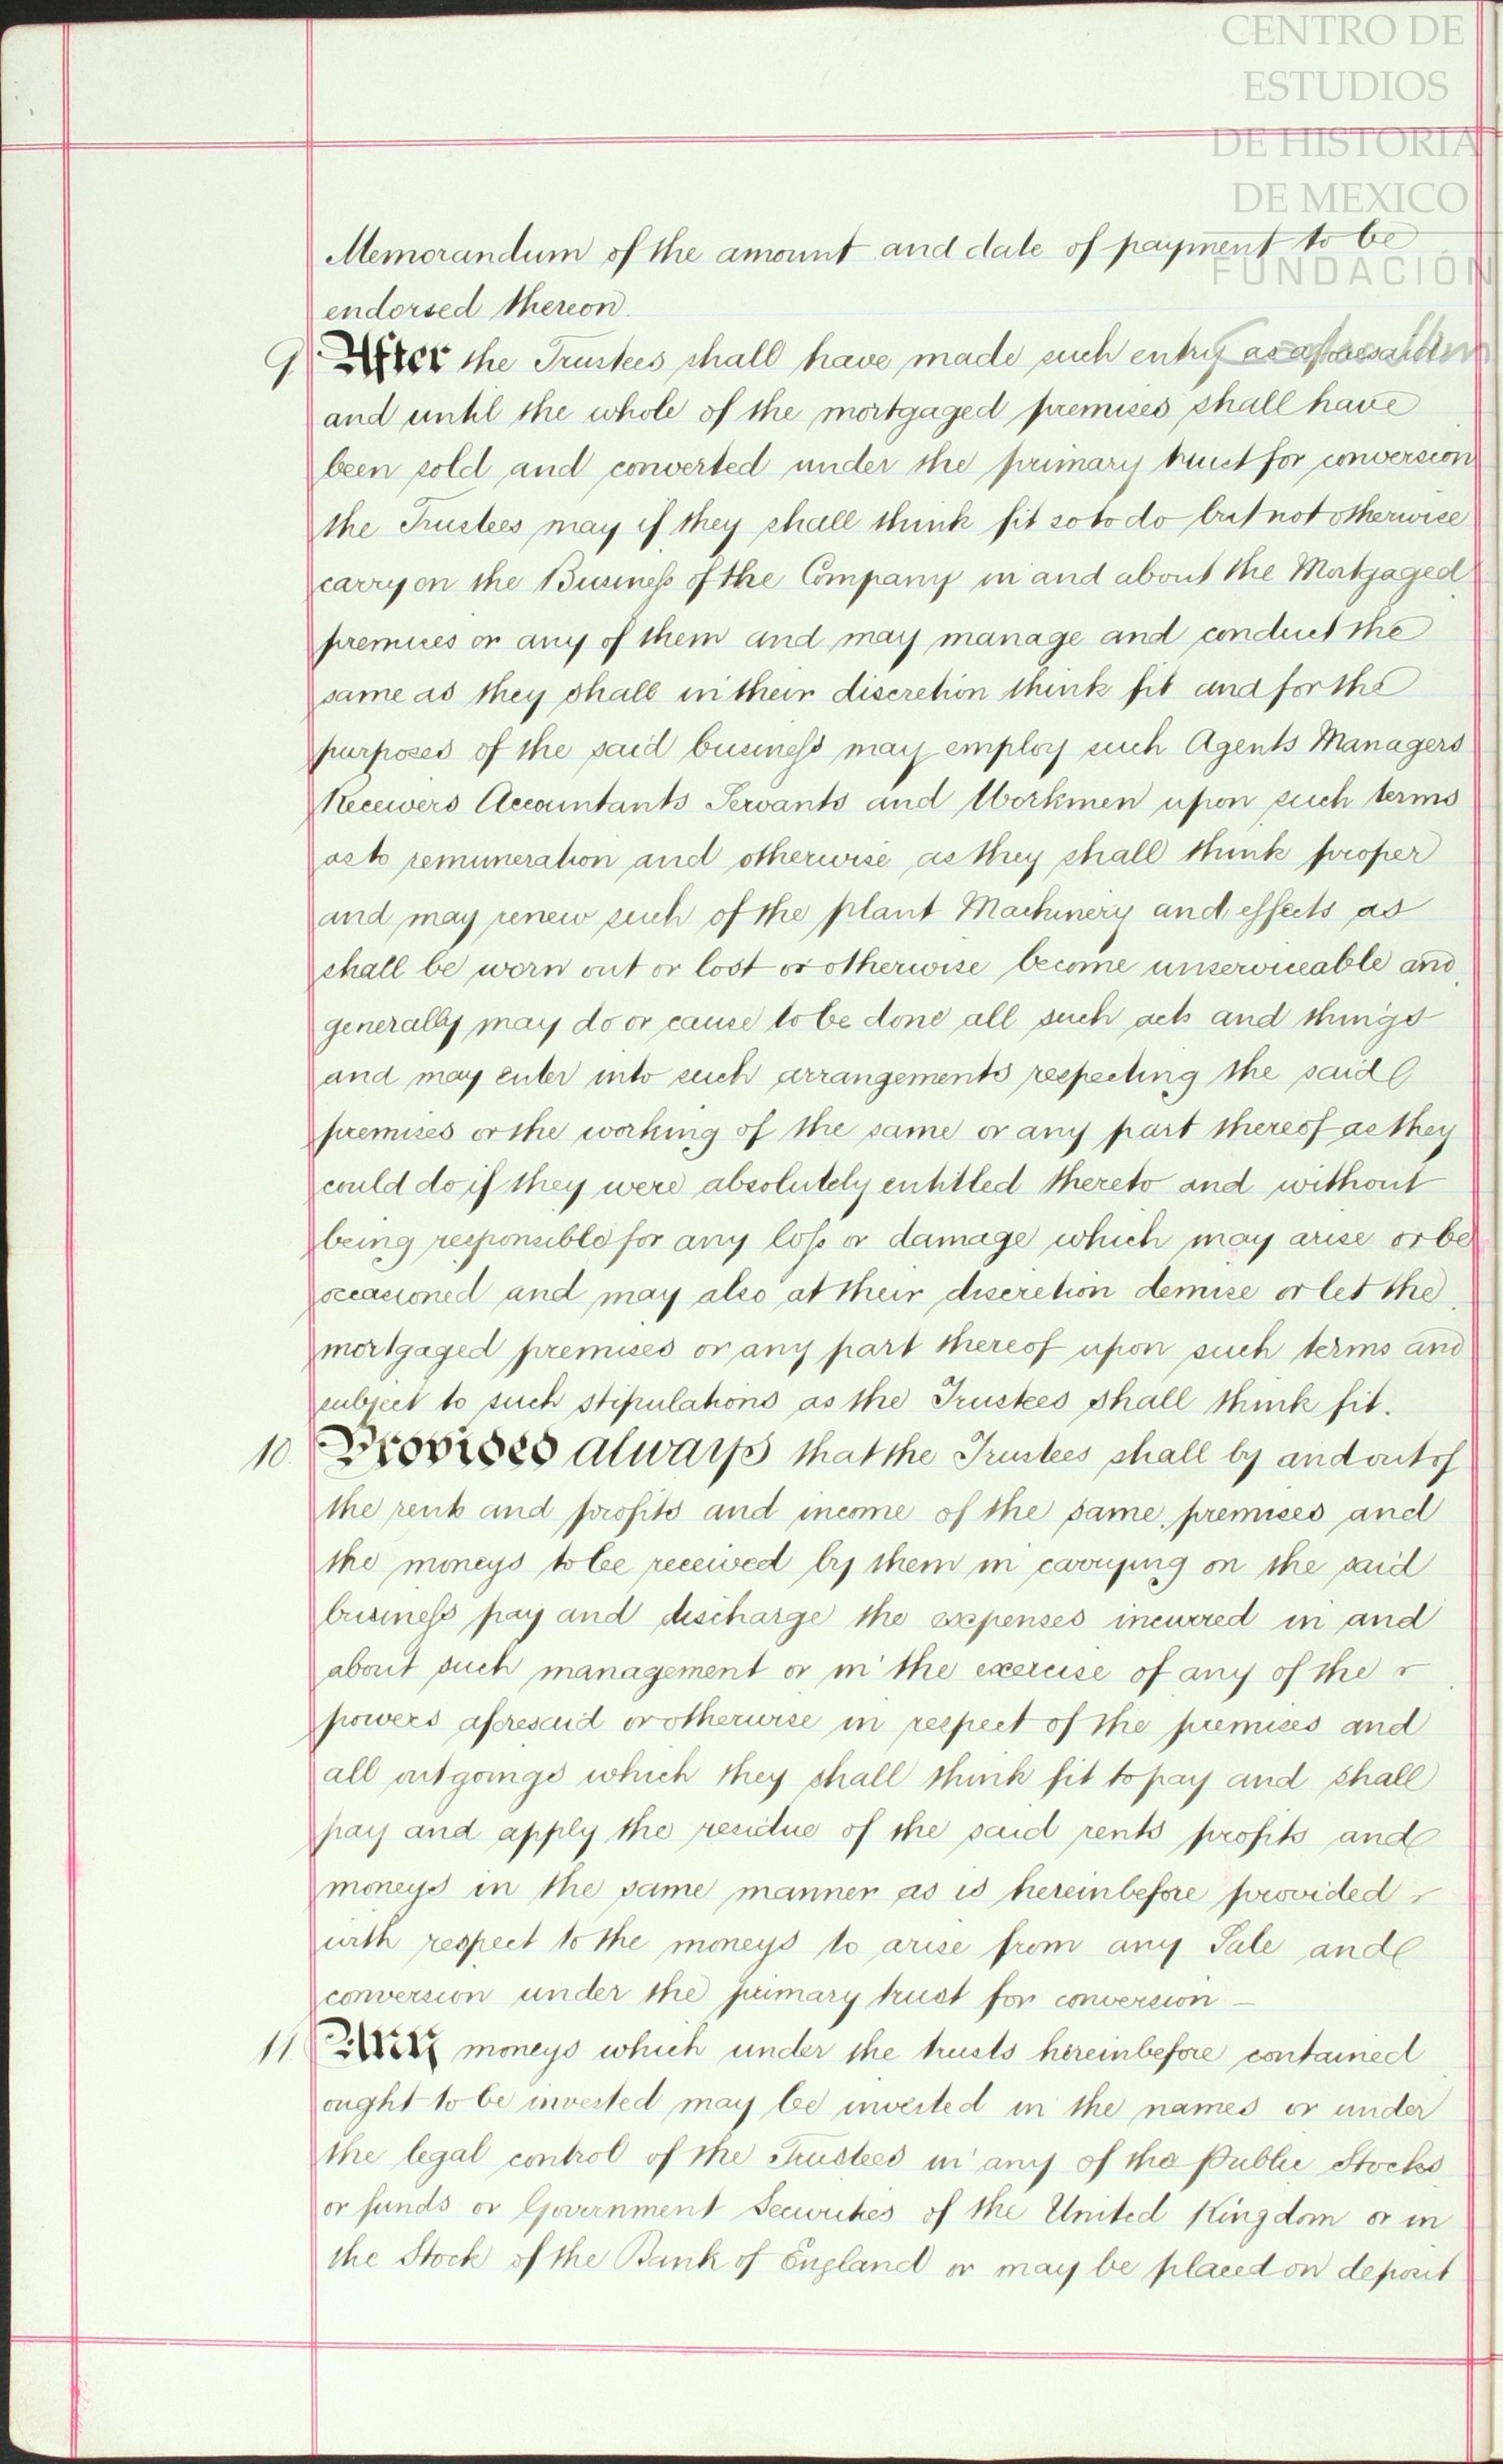 CENTRO DE
ESTUDIOS
DE HISTORIA
DE MEXICO
FUNDACIÓN
Memorandum of the amount and date of payment to be
endorsed thereon.
9 After the Trustees shall have made such entry as aforesaid
and until the whole of the mortgaged premises shall have
been sold and converted under the primary trust for conversion
the Trustees may if they shall think fit so to do but not otherwise
carry on the Business of the Company in and about the Mortgaged
premises or any of them and may manage and conduct the
same as they shall in their discretion think fit and for the
purposes of the said business may employ such Agents Managers
Receivers Accountants Servants and Workmen upon such terms
as to remuneration and otherwise as they shall think proper
and may renew such of the plant Machinery and effects as
shall be worn out or lost or otherwise become unserviceable and
generally may do or cause to be done all such acts and things
and may enter into such arrangements respecting the said
premises or the working of the same or any part thereof as they
could do if they were absolutely entitled thereto and without
being responsible for any loss or damage which may arise or be
occasioned and may also at their discretion demise or let the
mortgaged premises or any part thereof upon such terms and
subject to such stipulations as the Trustees shall think fit.
10. Provided always that the Trustees shall by and out of
the rents and profits and income of the same premises and
the moneys to be received by them in carrying on the said
business pay and discharge the expenses incurred in and
about such management or in the exercise of any of the
powers aforesaid or otherwise in respect of the premises and
all outgoings which they shall think fit to pay and shall
pay and apply the residue of the said rents profits and
moneys in the same manner as is hereinbefore provided
with respect to the moneys to arise from any Sale and
conversion under the primary trust for conversion —
11. Any moneys which under the trusts hereinbefore contained
ought to be invested may be invested in the names or under
the legal control of the Trustees in any of the Public Stocks
or funds or Government Securities of the United Kingdom or in
the Stock of the Bank of England or may be placed on deposit